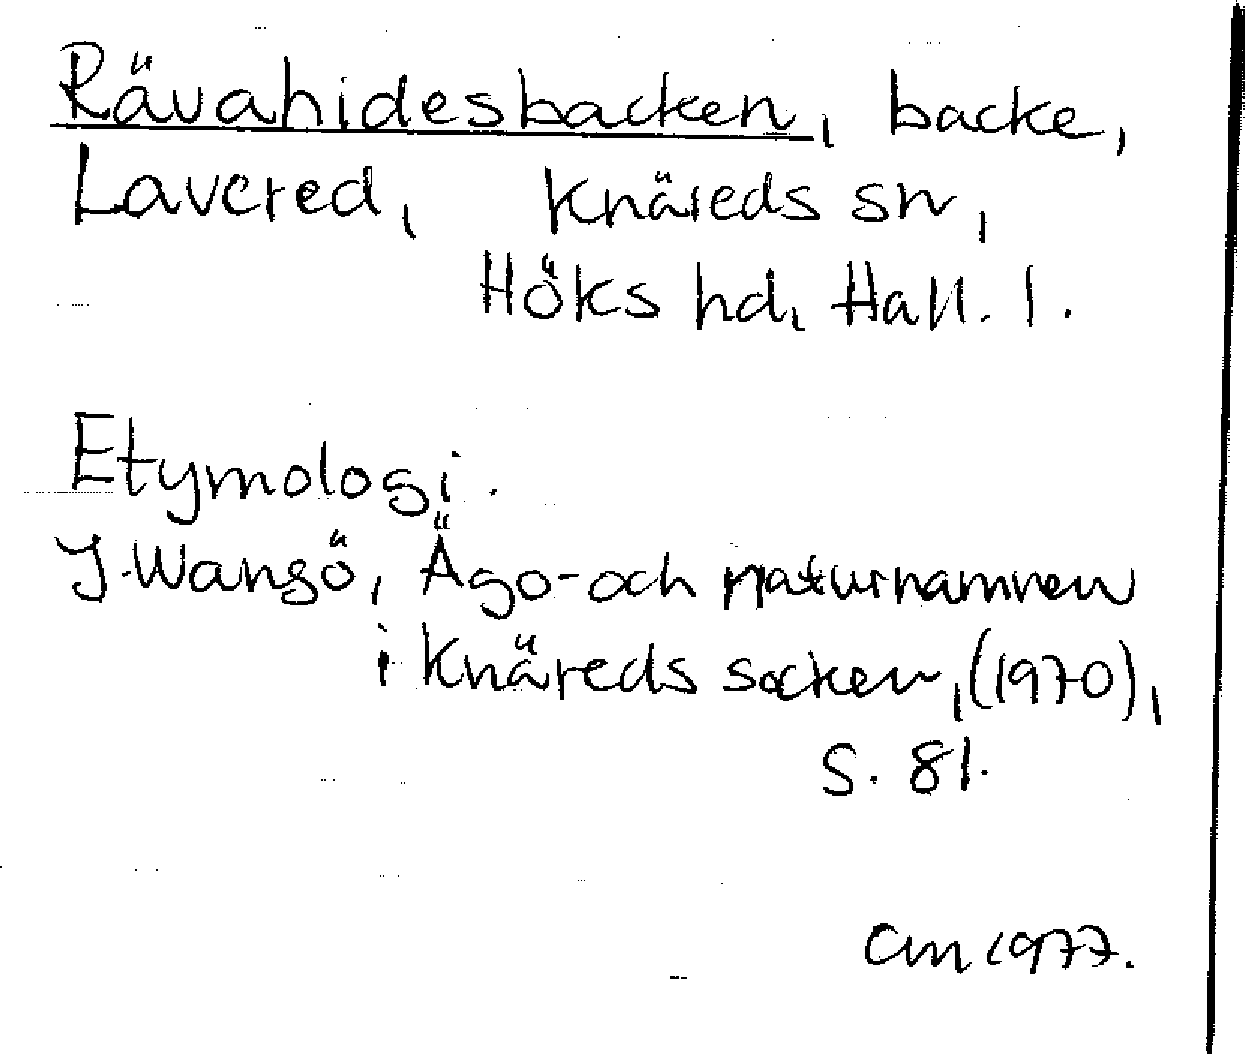 Rävahidesbacken, backe,
Lavered, Knäreds sn,
Höks hd, Hall. l.
Etymologi.
J. Wangö, Ägo- och naturnamnen
i Knäreds socken, (1970),
s. 81.
CM 1977.